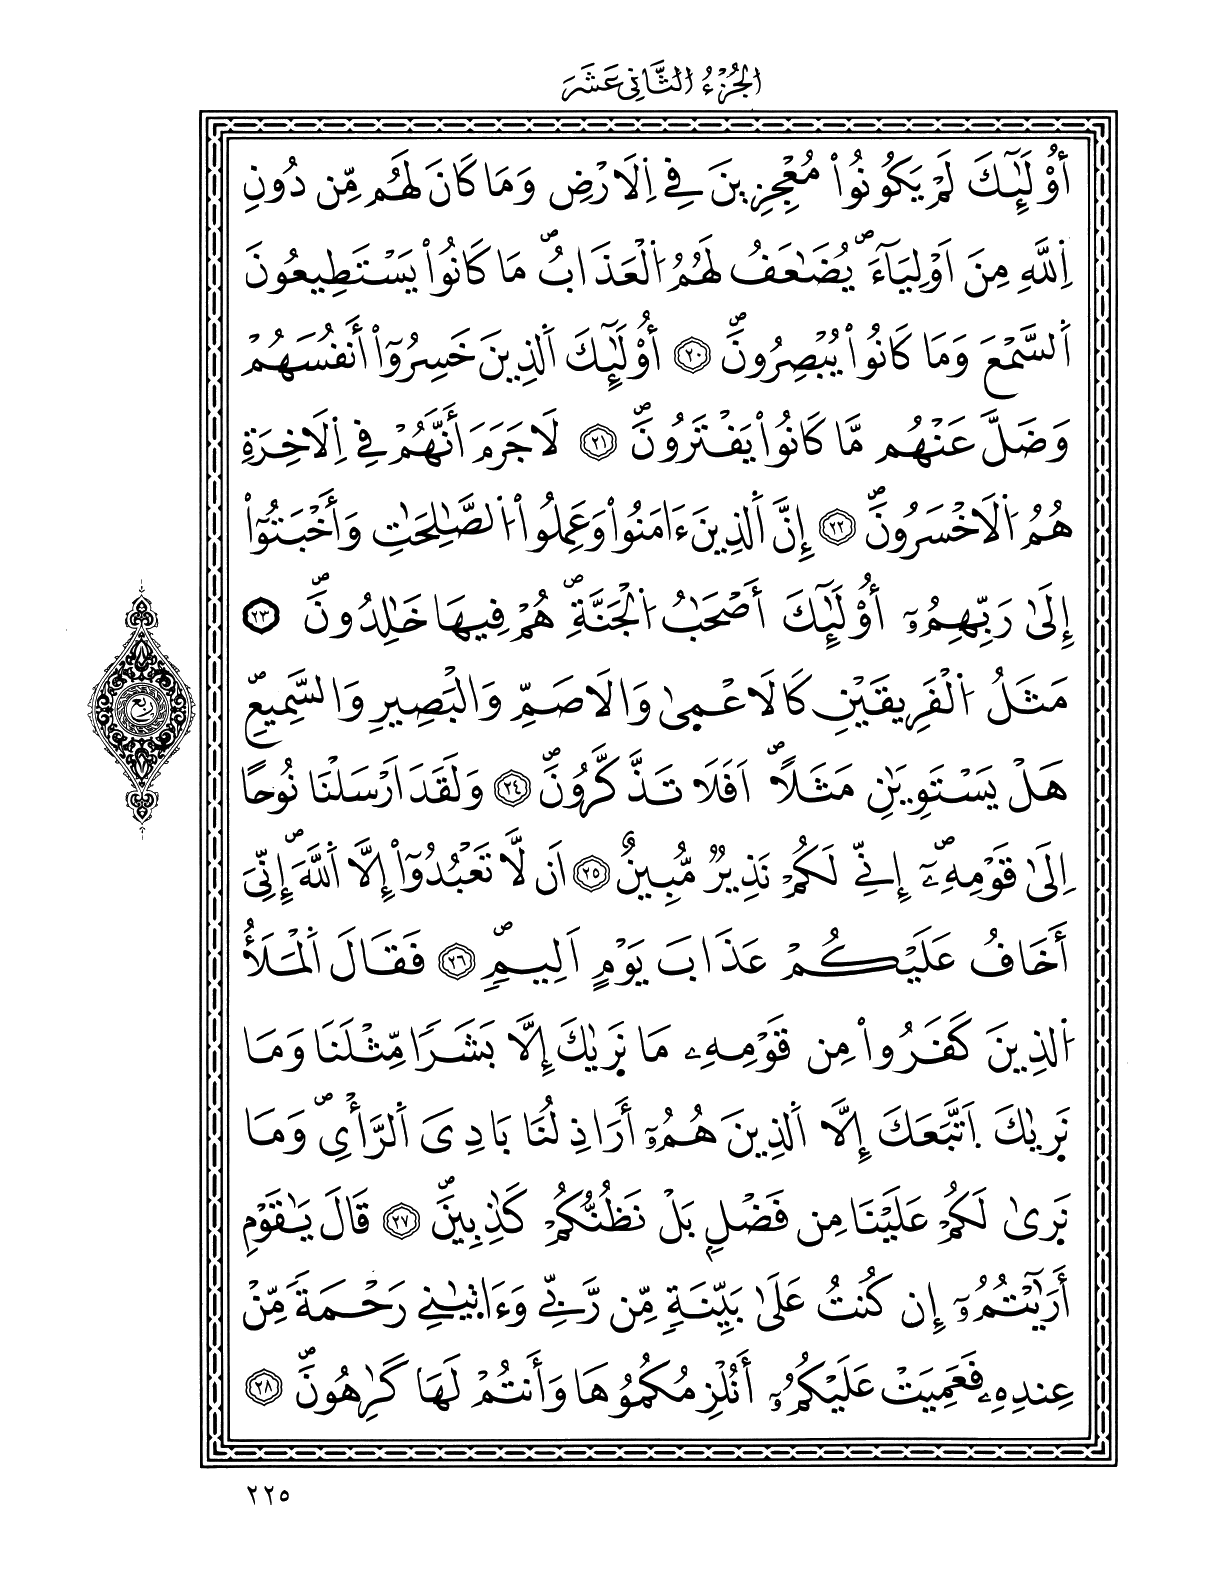 الجُزْءُ الثَّانِي عَشَرَ
أُوْلَٰٓئِكَ لَمْ يَكُونُواْ مُعْجِزِينَ فِے اِ۬لَارْضِ وَمَا كَانَ لَهُم مِّن دُونِ
اِ۬للَّهِ مِنَ اَوْلِيَآءَۖ يُضَٰعَفُ لَهُمُ اُ۬لْعَذَابُۖ مَا كَانُواْ يَسْتَطِيعُونَ
اَ۬لسَّمْعَ وَمَا كَانُواْ يُبْصِرُونَۖ ٢٠ أُوْلَٰٓئِكَ اَ۬لذِينَ خَسِرُوٓاْ أَنفُسَهُمْ
وَضَلَّ عَنْهُم مَّا كَانُواْ يَفْتَرُونَۖ ٢١ لَا جَرَمَ أَنَّهُمْ فِے اِ۬لَاخِرَةِ
هُمُ اُ۬لَاخْسَرُونَۖ ٢٢ إِنَّ اَ۬لذِينَ ءَامَنُواْ وَعَمِلُواْ اُ۬لصَّٰلِحَٰتِ وَأَخْبَتُوٓاْ
إِلَىٰ رَبِّهِمُۥٓ أُوْلَٰٓئِكَ أَصْحَٰبُ اُ۬لْجَنَّةِۖ هُمْ فِيهَا خَٰلِدُونَۖ ٢٣
مَثَلُ اُ۬لْفَرِيقَيْنِ كَالَاعْمۭيٰ وَالَاصَمِّ وَالْبَصِيرِ وَالسَّمِيعِۖ
هَلْ يَسْتَوِيَٰنِ مَثَلاًۖ اَفَلَا تَذَّكَّرُونَۖ ٢٤ وَلَقَدَ اَرْسَلْنَا نُوحًا
اِلَىٰ قَوْمِهِۦٓۖ إِنِّے لَكُمْ نَذِيرٞ مُّبِينٌ ٢٥ اَن لَّا تَعْبُدُوٓاْ إِلَّا اَ۬للَّهَۖ إِنِّيَ
أَخَافُ عَلَيْكُمْ عَذَابَ يَوْمٍ اَلِيمٖۖ ٢٦ فَقَالَ اَ۬لْمَلَأُ
اُ۬لذِينَ كَفَرُواْ مِن قَوْمِهِۦ مَا نَرۭيٰكَ إِلَّا بَشَراٗ مِّثْلَنَا وَمَا
نَرۭيٰكَ اَ۪تَّبَعَكَ إِلَّا اَ۬لذِينَ هُمُۥٓ أَرَاذِلُنَا بَادِيَ اَ۬لرَّأْيِۖ وَمَا
نَرۭيٰ لَكُمْ عَلَيْنَا مِن فَضْلِۢ بَلْ نَظُنُّكُمْ كَٰذِبِينَۖ ٢٧ قَالَ يَٰقَوْمِ
أَرَٰٓيْتُمُۥٓ إِن كُنتُ عَلَىٰ بَيِّنَةٖ مِّن رَّبِّے وَءَاتۭيٰنِے رَحْمَةٗ مِّنْ
عِندِهِۦ فَعَمِيَتْ عَلَيْكُمُۥٓ أَنُلْزِمُكُمُوهَا وَأَنتُمْ لَهَا كَٰرِهُونَۖ ٢٨
ربع
٢٢٥